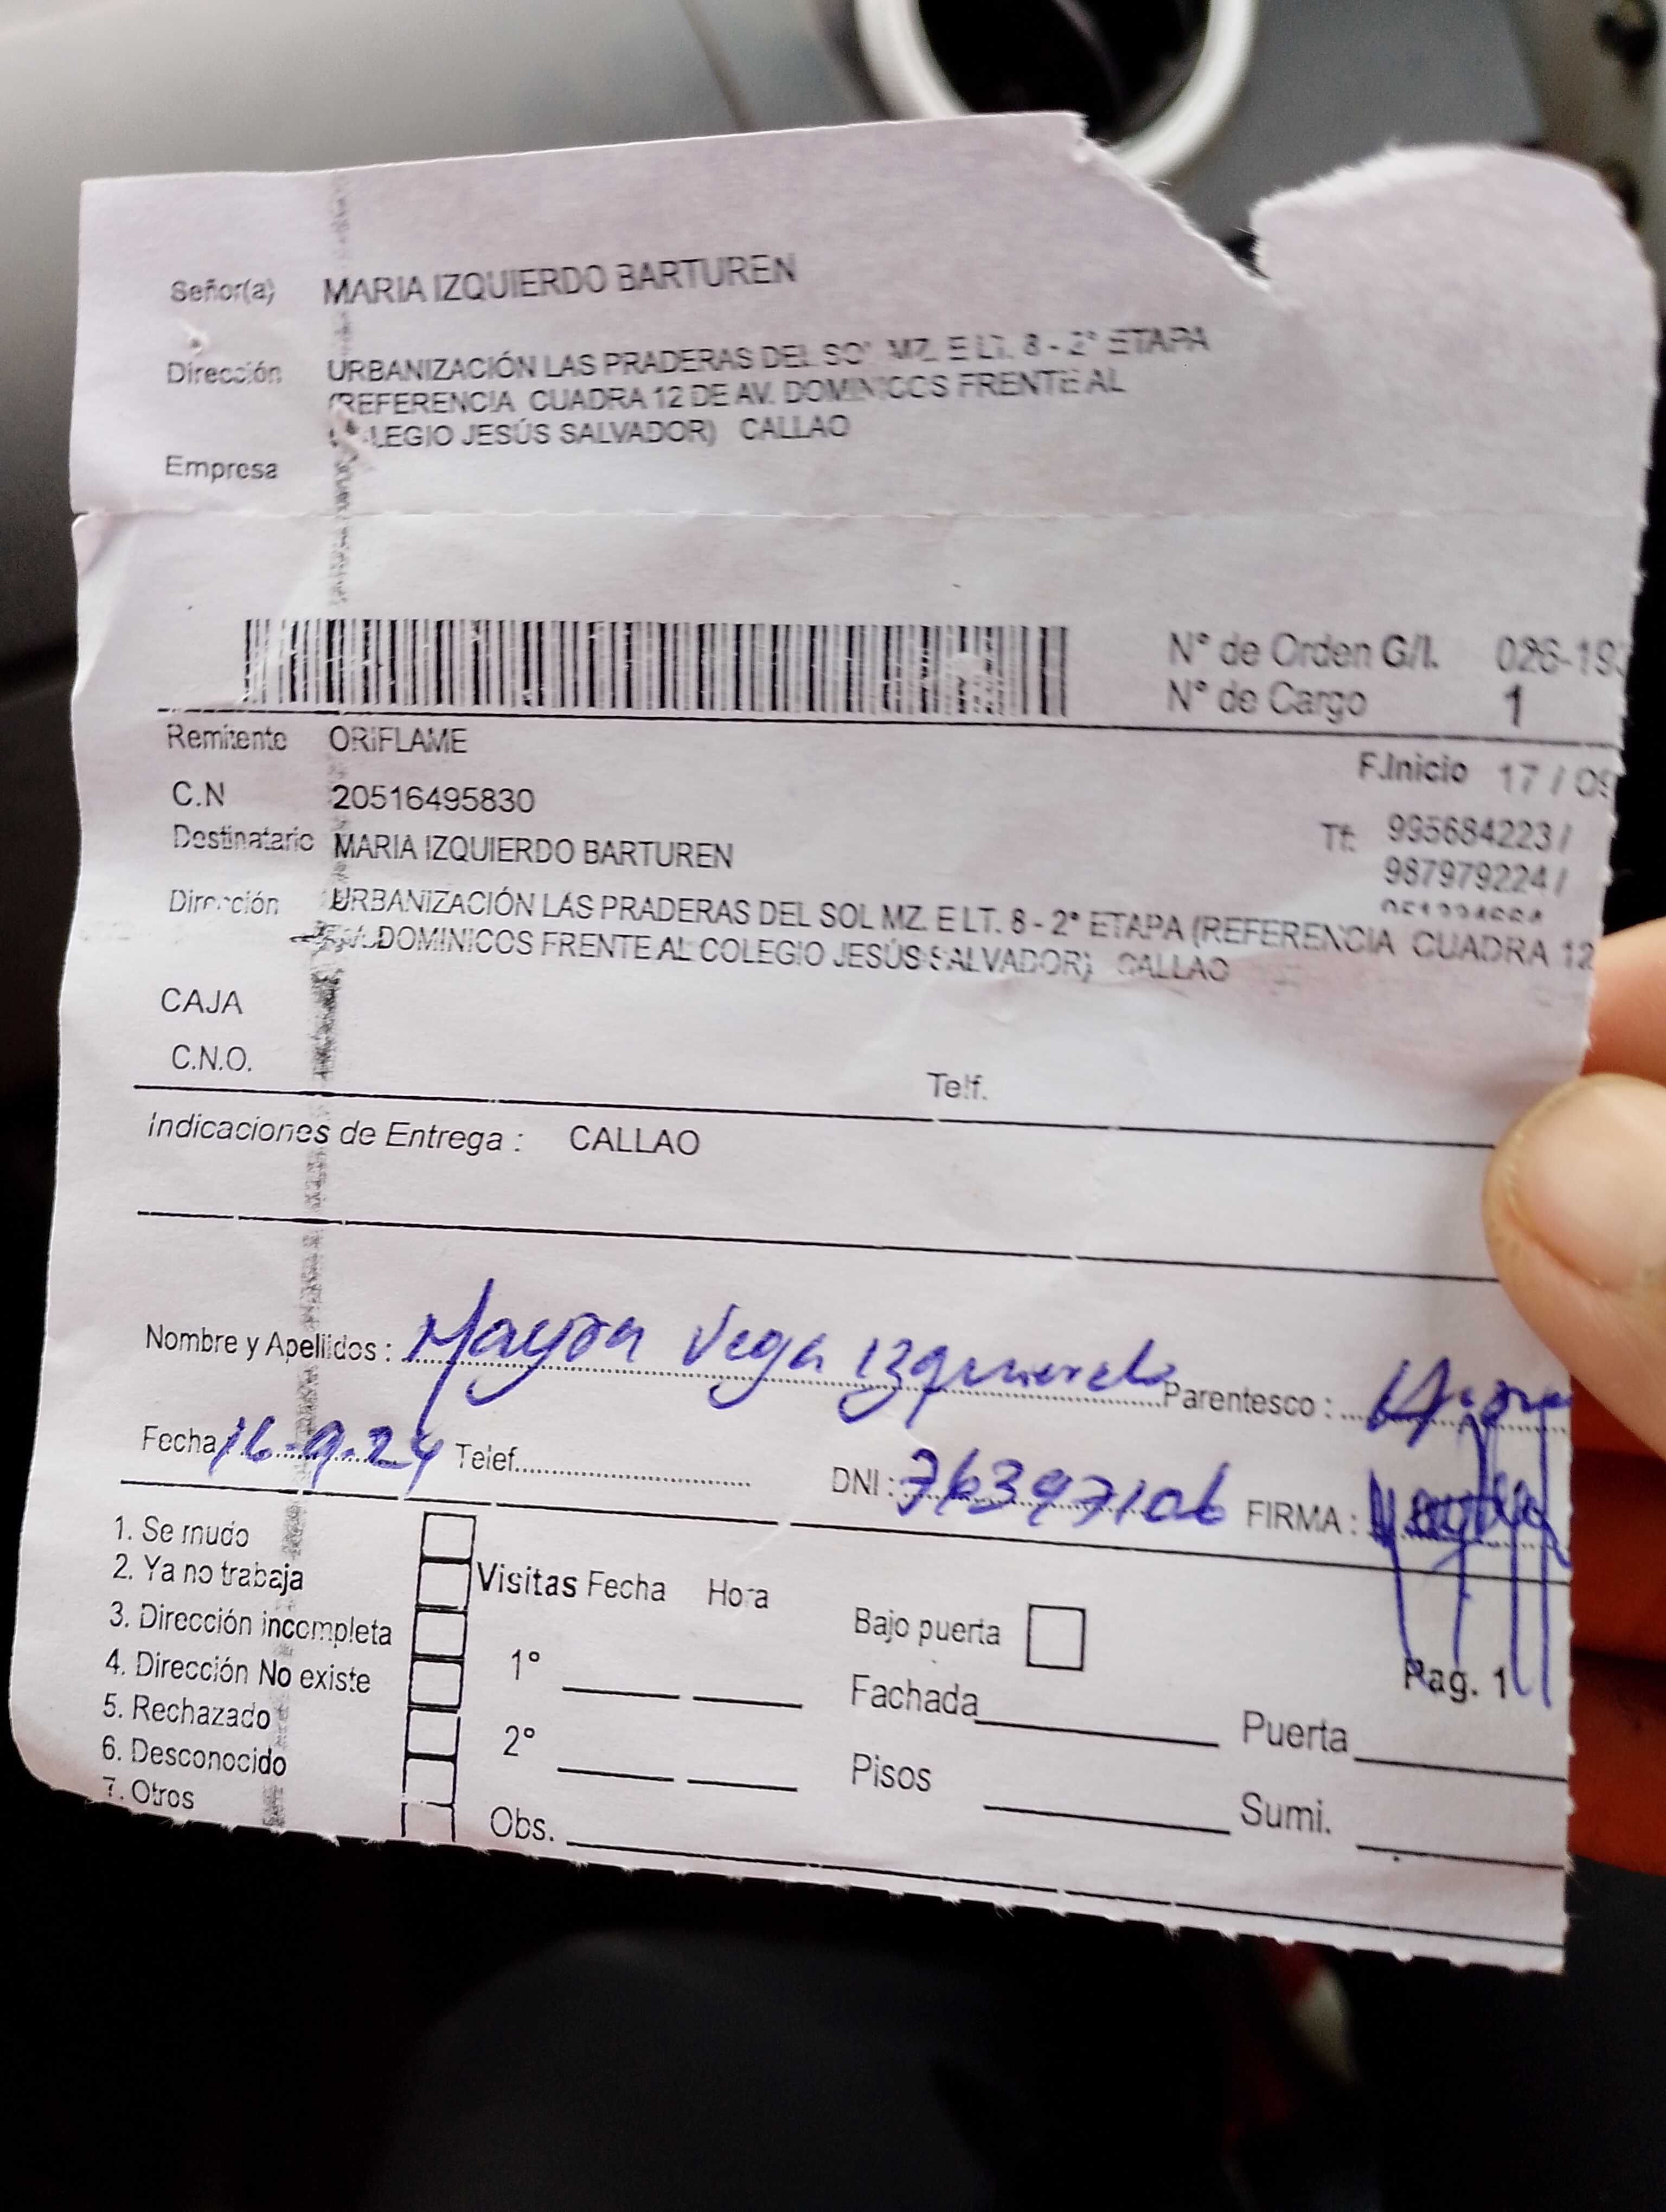 Señor(a) MARIA IZQUIERDO BARTUREN
Dirección URBANIZACIÓN LAS PRADERAS DEL SOL MZ. E LT. 8 - 2° ETAPA
(REFERENCIA CUADRA 12 DE AV. DOMINICOS FRENTE AL
LEGIO JESÚS SALVADOR) CALLAO
Empresa
N° de Orden G/I. 026-19
N° de Cargo 1
Remitente ORIFLAME
F.Inicio 17 / 09
C.N 20516495830
Tf: 995684223 /
Destinatario MARIA IZQUIERDO BARTUREN
987979224 /
Dirección URBANIZACIÓN LAS PRADERAS DEL SOL MZ. E LT. 8 - 2° ETAPA (REFERENCIA CUADRA 12
DOMINICOS FRENTE AL COLEGIO JESÚS SALVADOR) CALLAO
CAJA
C.N.O.
Telf.
Indicaciones de Entrega : CALLAO
Nombre y Apellidos : Mayra Vega Izquierdo Parentesco :
Fecha 16-9-24 Telef. DNI : 76397106 FIRMA :
1. Se mudo
2. Ya no trabaja Visitas Fecha Hora
3. Dirección incompleta Bajo puerta
4. Dirección No existe 1° Pag. 1
5. Rechazado Fachada Puerta
6. Desconocido 2° Pisos
7. Otros Obs. Sumi.